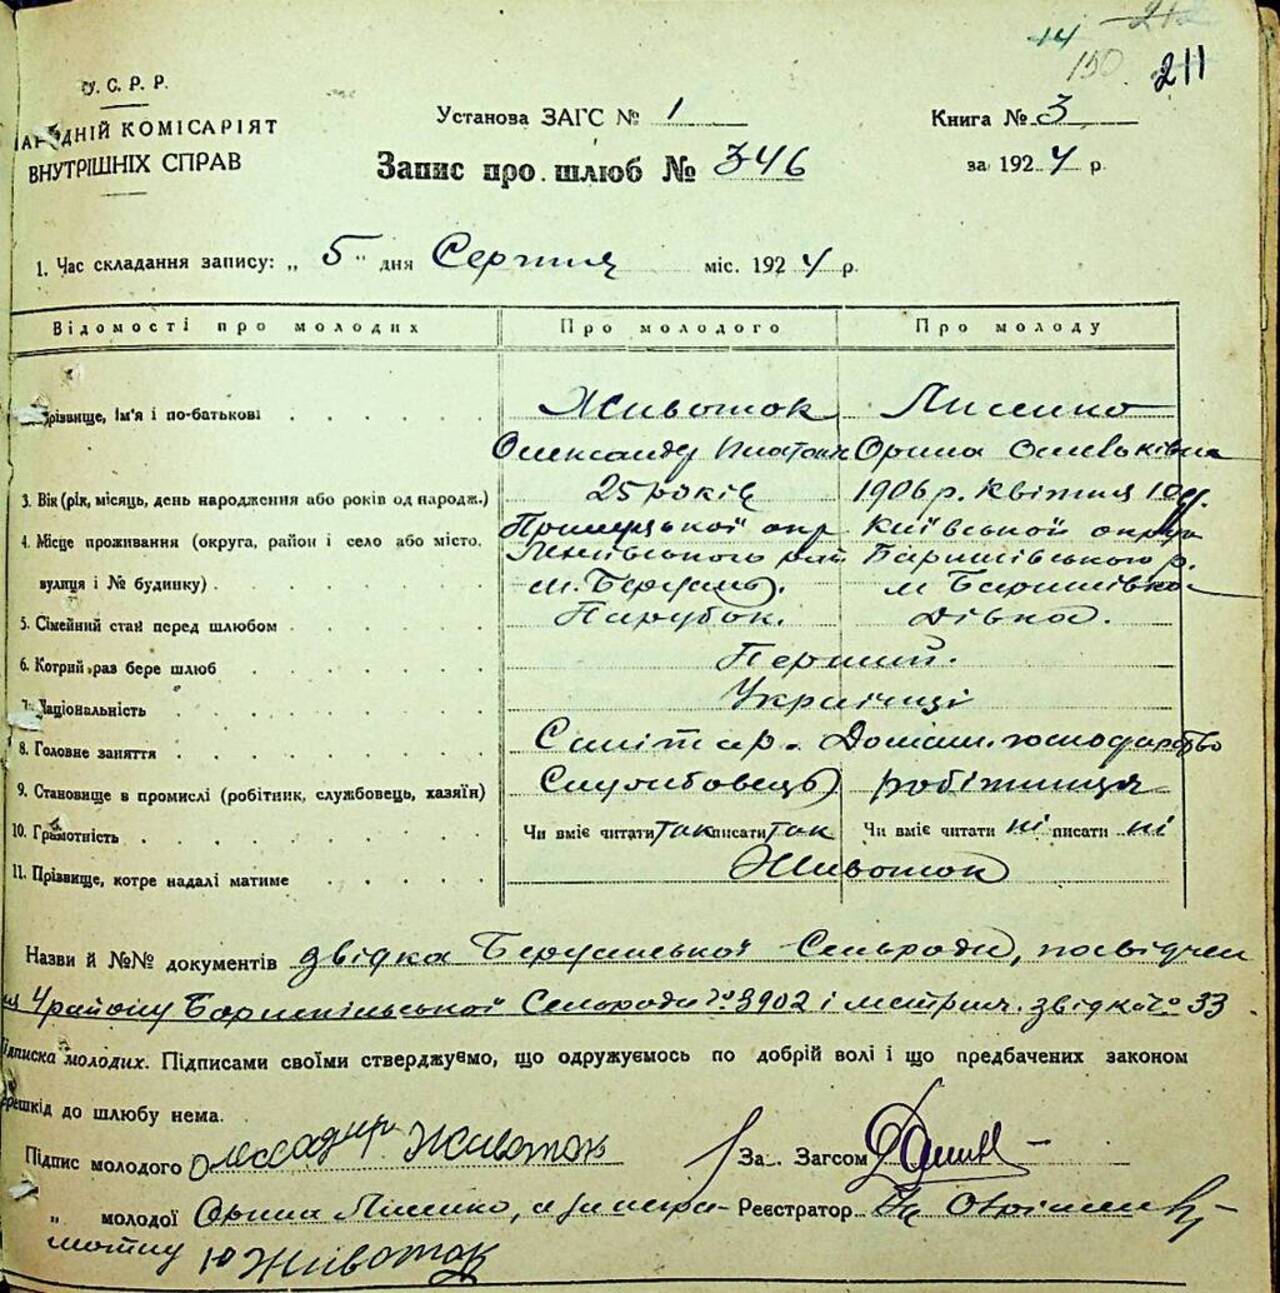 14 212
150 211
У.С.Р.Р.
НАРОДНІЙ КОМІСАРІЯТ
ВНУТРІШНІХ СПРАВ
Установа ЗАГС № 1
Книга № 3
Запис про шлюб № 346
за 1924 р.
1. Час складання запису: „5" дня Серпня міс. 1924 р.
Відомості про молодих Про молодого Про молоду
Прізвище, ім'я і по-батькові Животок Лисенко
Олександр Орина
3. Вік (рік, місяць, день народження або років од народж.) 25 років 1906 р. Квітня 10 д.
4. Місце проживання (округа, район і село або місто, окр Київської округи
вулиця і № будинку) Баришівського р.
м. м Баришівка
5. Сімейний стан перед шлюбом Парубок. Дівка.
6. Котрий раз бере шлюб Перший.
7. Національність Українці
8. Головне заняття Санітар. Домашн. господарство
9. Становище в промислі (робітник, службовець, хазяїн) Службовець робітниця
10. Грамотність Чи вміє читати так писати так Чи вміє читати ні писати ні
11. Прізвище, котре надалі матиме Животок
Назви й №№ документів звідка Сельради, посвідчен
ня 4 району Сельради № 8902 і метрич. звідка № 33
Підписка молодих. Підписами своїми стверджуємо, що одружуємось по добрій волі і що предбачених законом
перешкід до шлюбу нема.
Підпис молодого Олександр Животок За Загсом
„ молодої Орина Лисенко, а за Реєстратор
Животок